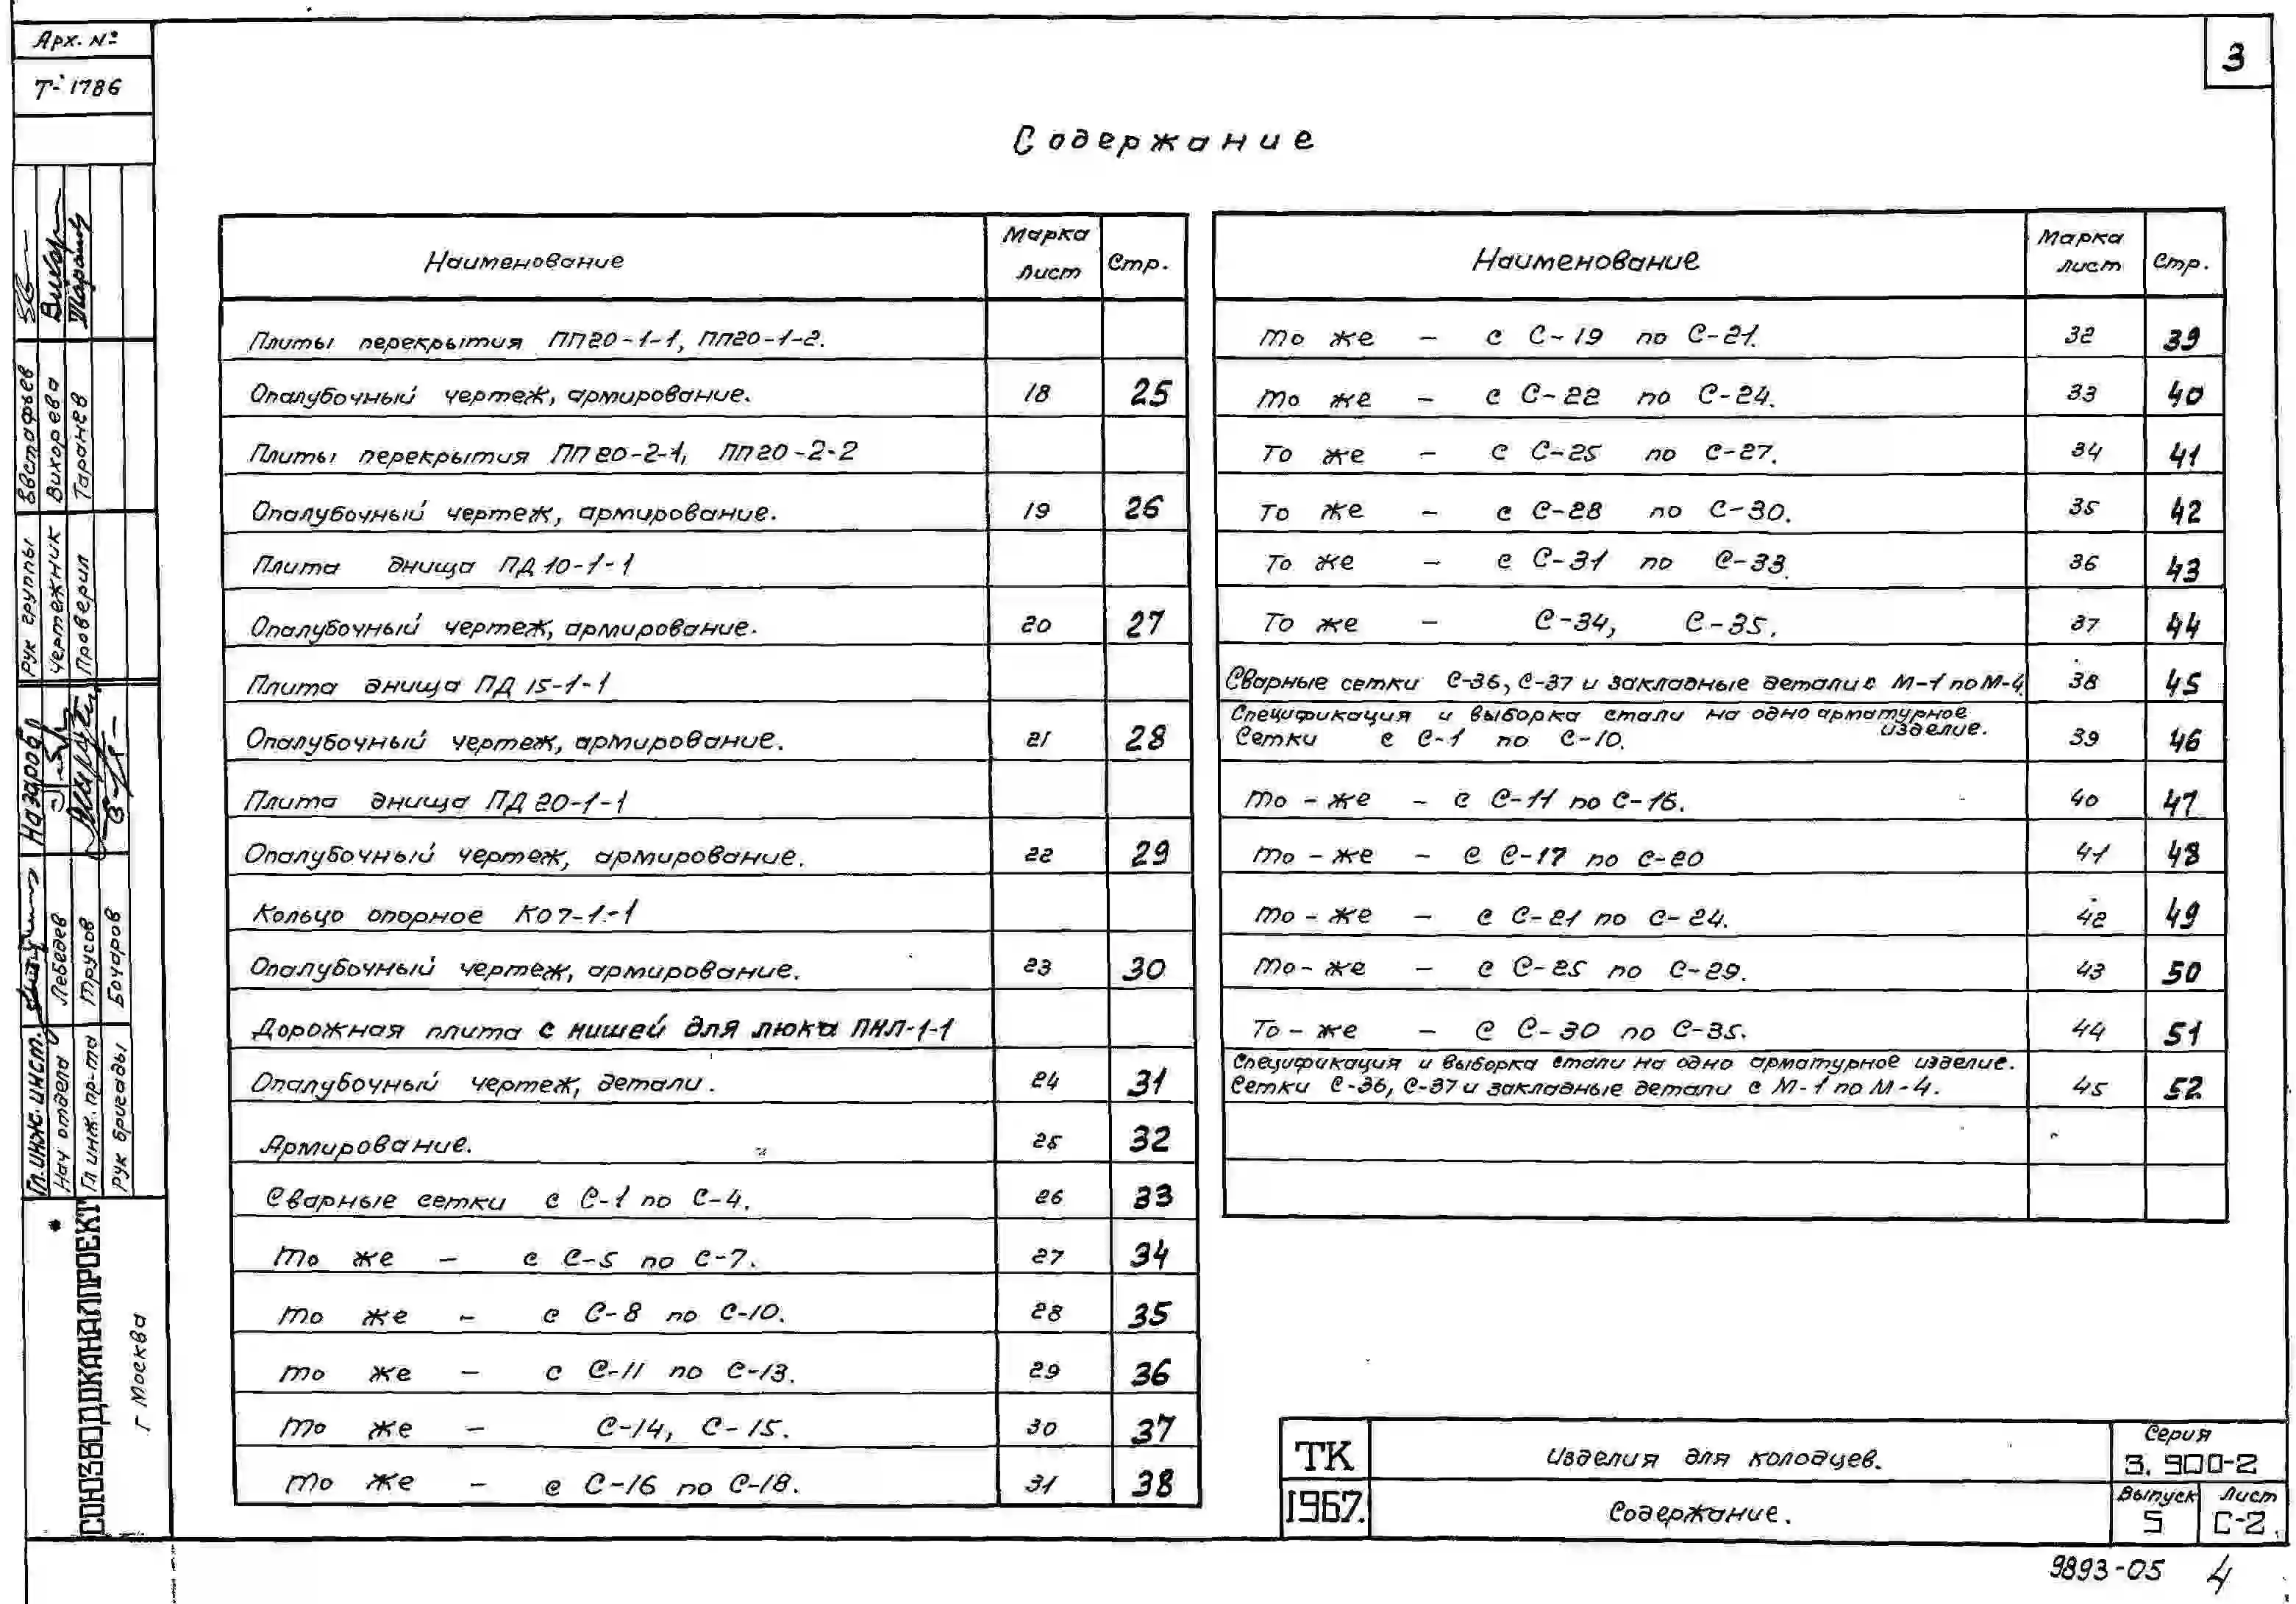 Арх. №
Т-1786
3
Содержание
Наименование Марка Лист Стр.
Плиты перекрытия ПП20-1-1, ПП20-1-2.
Опалубочный чертеж, армирование. 18 25
Плиты перекрытия ПП20-2-1, ПП20-2-2
Опалубочный чертеж, армирование. 19 26
Плита днища ПД10-1-1
Опалубочный чертеж, армирование. 20 27
Плита днища ПД15-1-1
Опалубочный чертеж, армирование. 21 28
Плита днища ПД20-1-1
Опалубочный чертеж, армирование. 22 29
Кольцо опорное КО7-1-1
Опалубочный чертеж, армирование. 23 30
Дорожная плита с нишей для люка ПНЛ-1-1
Опалубочный чертеж, детали. 24 31
Армирование. 25 32
Сварные сетки с С-1 по С-4. 26 33
То же - с С-5 по С-7. 27 34
То же - с С-8 по С-10. 28 35
То же - с С-11 по С-13. 29 36
То же - С-14, С-15. 30 37
То же - с С-16 по С-18. 31 38
Наименование Марка лист Стр.
То же - с С-19 по С-21. 32 39
То же - с С-22 по С-24. 33 40
То же - с С-25 по С-27. 34 41
То же - с С-28 по С-30. 35 42
То же - с С-31 по С-33. 36 43
То же - С-34, С-35. 37 44
Сварные сетки С-36, С-37 и закладные детали с М-1 по М-4 38 45
Спецификация и выборка стали на одно арматурное изделие.
Сетки с С-1 по С-10. 39 46
То-же - с С-11 по С-16. 40 47
То-же - с С-17 по С-20 41 48
То-же - с С-21 по С-24. 42 49
То-же - с С-25 по С-29. 43 50
То-же - с С-30 по С-35. 44 51
Спецификация и выборка стали на одно арматурное изделие.
Сетки С-36, С-37 и закладные детали с М-1 по М-4. 45 52
Рук группы Евстафьев
Чертежник Вихорева
Проверил Таранев
Гл. инж. инст. Назаров
Нач отдела Лебедев
Гл инж. пр-та Трусов
Рук бригады Бочаров
СОЮЗВОДОКАНАЛПРОЕКТ
г Москва
ТК
1967.
Изделия для колодцев.
Содержание.
Серия
3.900-2
Выпуск Лист
5 С-2.
9893-05 4